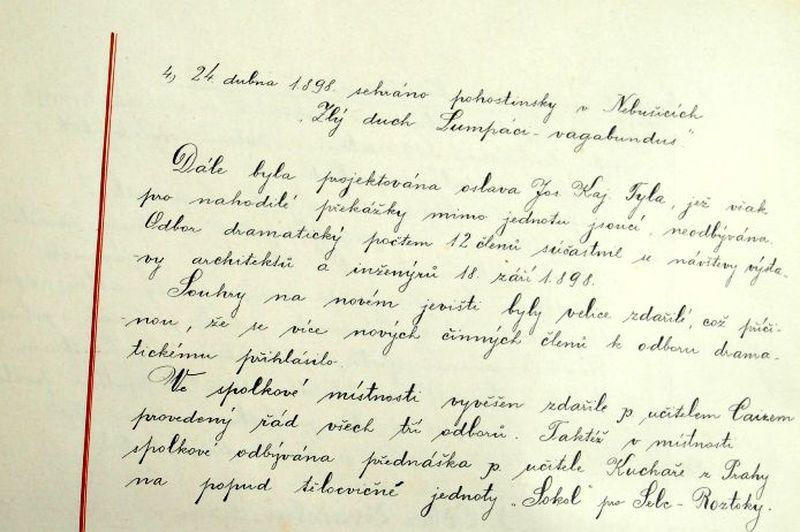 4, 24. dubna 1.898. sehráno pohostinsky v Nebušicích
„Zlý duch Lumpáci-vagabundus."
Dále byla projektována oslava Jos. Kaj. Tyla, jež však
pro nahodilé překážky mimo jednotu jsoucí, neodbývána.
Odbor dramatický počtem 12 členů súčastnil se návštevy výsta-
vy architektů a inženýrů 18. září 1.898.
Souhry na novém jevišti byly velice zdařilé, což příči-
nou, že se více nových činných členů k odboru drama-
tickému přihlásilo.
Ve spolkové místnosti vyvěšen zdařile p. učitelem
provedený řád všech tří odborů. Taktéž v místnosti
spolkové odbývána přednáška p. učitele Kuchaře z Prahy
na popud tělocvičné jednoty „Sokol" pro Selc-Roztoky.